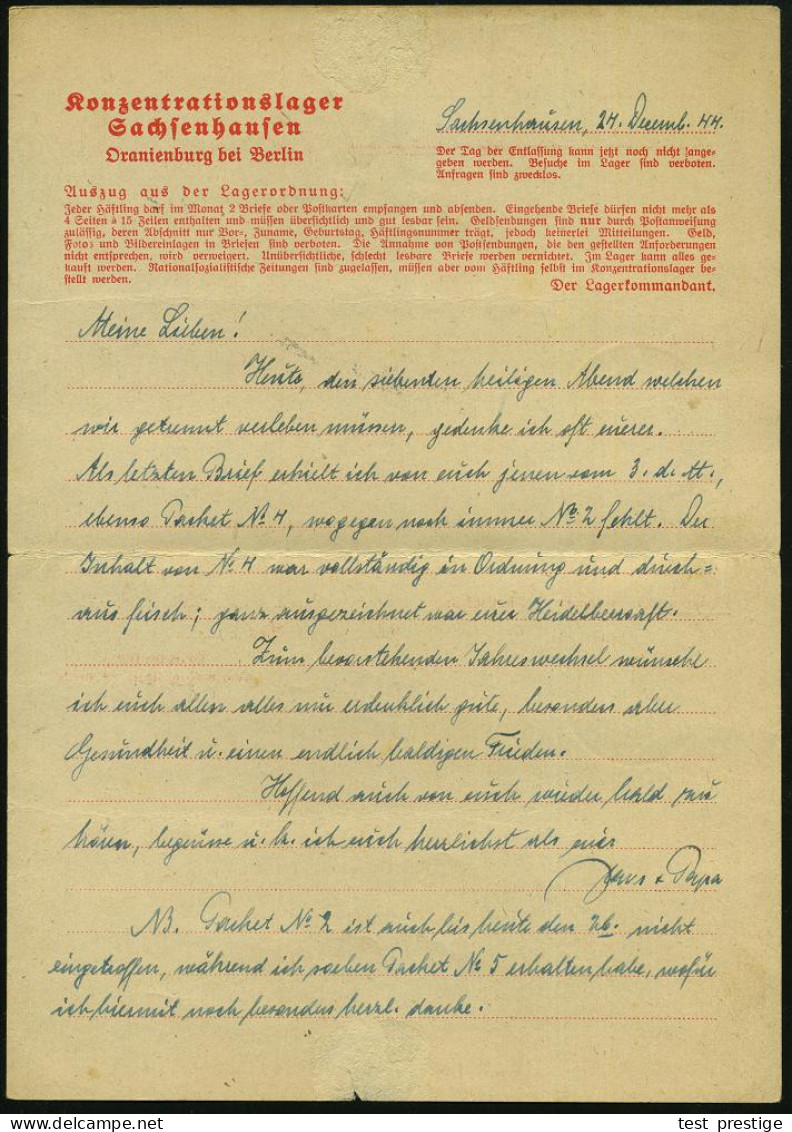 Konzentrationslager
Sachsenhausen
Oranienburg bei Berlin
Sachsenhausen, 24. Decemb. 44.
Der Tag der Entlassung kann jetzt noch nicht ange-
geben werden. Besuche im Lager sind verboten.
Anfragen sind zwecklos.
Auszug aus der Lagerordnung:
Jeder Häftling darf im Monat 2 Briefe oder Postkarten empfangen und absenden. Eingehende Briefe dürfen nicht mehr als
4 Seiten à 15 Zeilen enthalten und müssen übersichtlich und gut lesbar sein. Geldsendungen sind nur durch Postanweisung
zulässig, deren Abschnitt nur Vor-, Zuname, Geburtstag, Häftlingsnummer trägt, jedoch keinerlei Mitteilungen. Geld,
Fotos und Bildereinlagen in Briefen sind verboten. Die Annahme von Postsendungen, die den gestellten Anforderungen
nicht entsprechen, wird verweigert. Unübersichtliche, schlecht lesbare Briefe werden vernichtet. Im Lager kann alles ge-
kauft werden. Nationalsozialistische Zeitungen sind zugelassen, müssen aber vom Häftling selbst im Konzentrationslager be-
stellt werden.
Der Lagerkommandant.
Meine Lieben!
Heute, den siebenten heiligen Abend welchen
wir getrennt verleben müssen, gedenke ich oft eurer.
Als letzten Brief erhielt ich von euch jenen vom 3. d. M.,
ebenso Packet No 4, wogegen noch immer No 2 fehlt. Der
Inhalt von No 4 war vollständig in Ordnung und durch=
aus frisch; ganz ausgezeichnet war euer Heidelbeersaft.
Zum bevorstehenden Jahreswechsel wünsche
ich euch allen alles nur erdenklich gute, besonders aber
Gesundheit u. einen endlich baldigen Frieden.
Hoffend auch von euch wieder bald zu
hören, begrüsse u. k. ich euch herzlichst als euer
+ Papa
NB. Packet No 2 ist auch bis heute den 26. nicht
eingetroffen, während ich soeben Packet No 5 erhalten habe, wofür
ich hiermit noch besonders herzl. danke.
test prestige